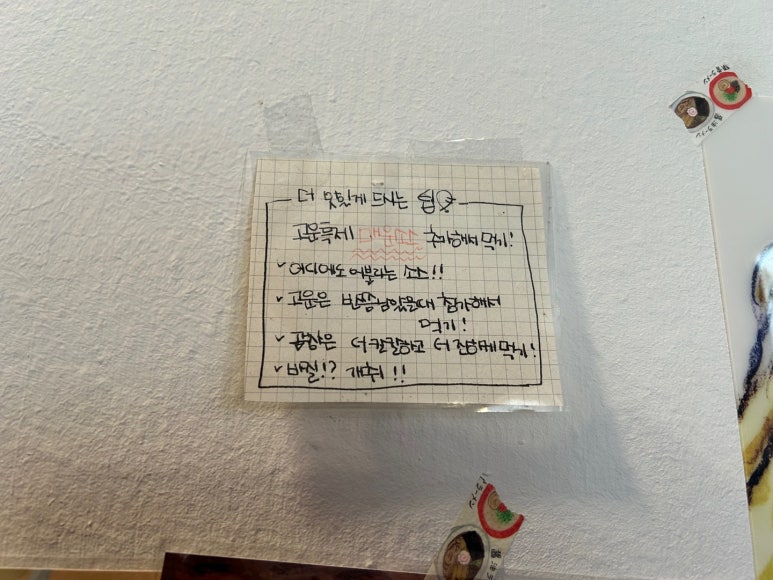 더 맛있게 드시는 팁
고운특제 매운소스 추가해서 먹기!
✓ 어디에도 어울리는 소스!!
✓ 고운은 반쯤남았을때 첨가해서
먹기!
✓ 은 더 칼칼하고 더 진하게 먹기!
✓ !? 개취 !!